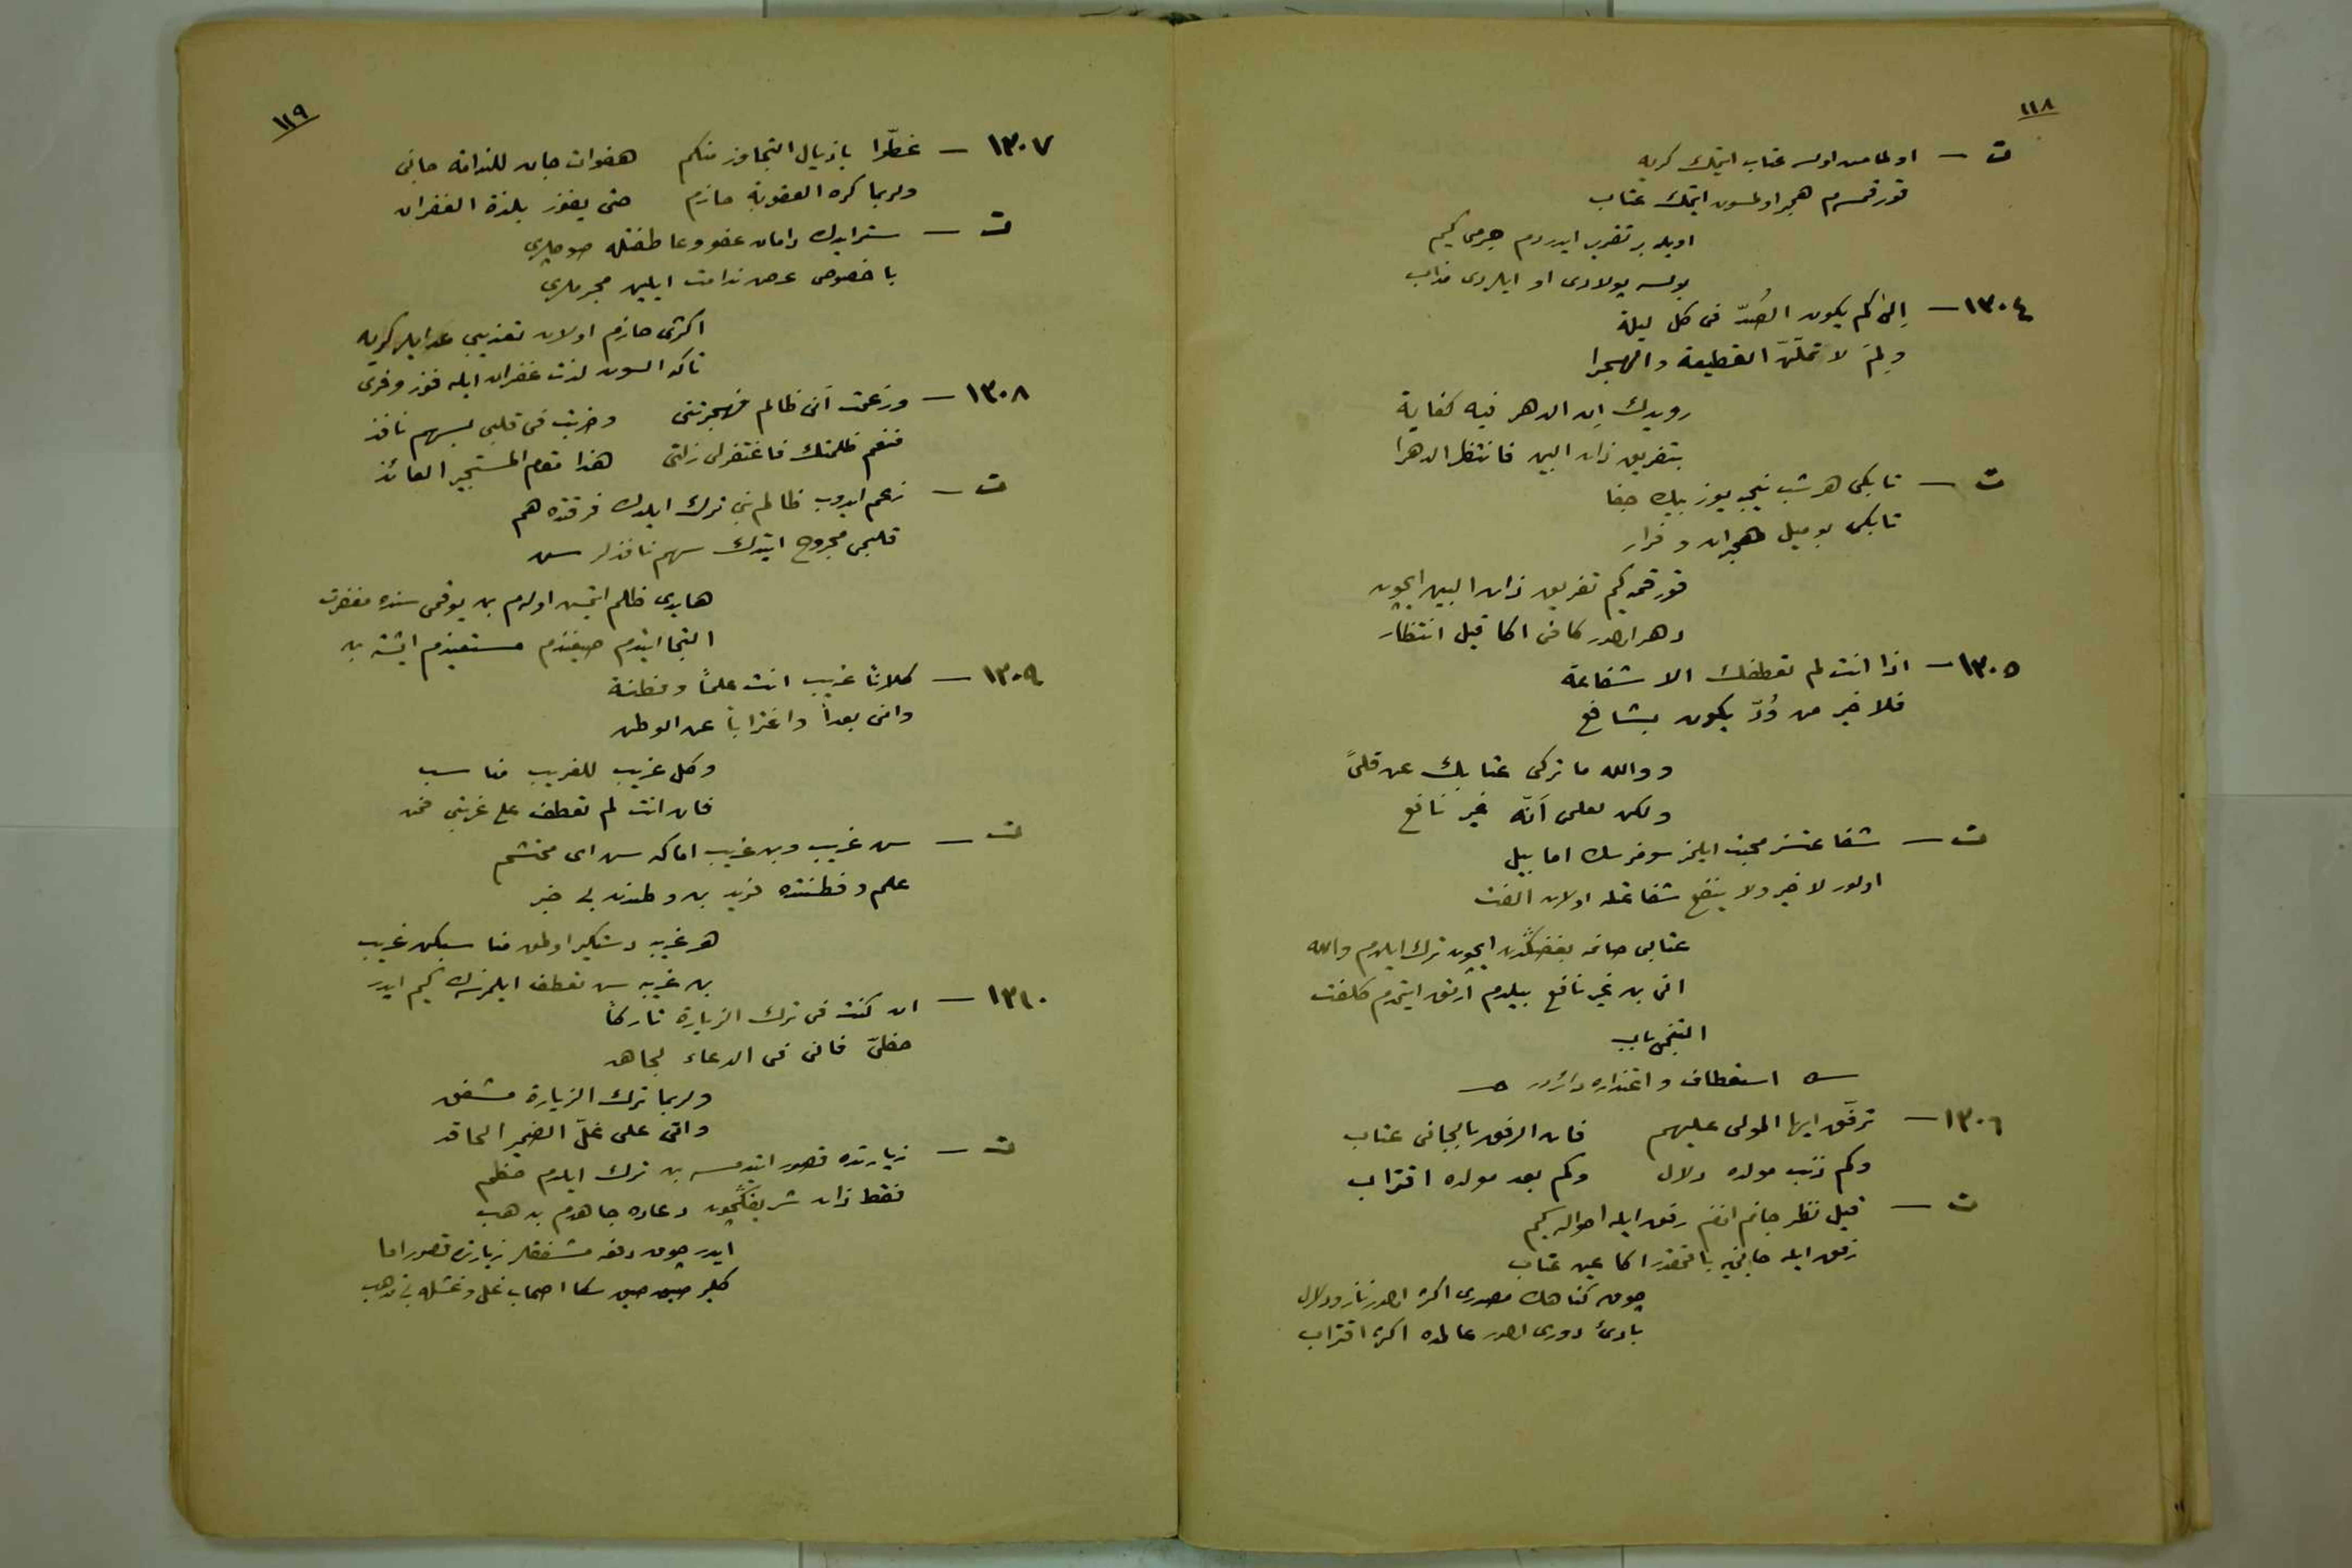 ١١٨
ت — اولماسه اولسه عتاب ايتمك كريه
قورقمسم هجر اولسون ايتمك عتاب
اويله بر تقرب ايدردم جرمى كيم
١٣٠٤ — إلى كم يكون الصدّ فى كل ليلة
ولِمَ لا تملّنّ القطيعة والهجرا
رويدك ان الدهر فيه كفاية
بتفريق ذات البين فانتظر الدهرا
ت — تا بكى هر شب نيجه يوز بيك جفا
تا بكى بو ميل هجران و فرار
قورقمه كيم تفريق ذات البين ايچون
دهر ايدر كافى اكا قيل انتظار
١٣٠٥ — اذا انت لم تعطفك الا شفاعة
فلا خير من وُدّ يكون بشافع
ووالله ما تركى عتابك عن قلىً
ولكن لعلمى أنّه غير نافع
ت — شفاعتسز محبت ايلمز سوفرسك اما بيل
اولور لا خير ولا ينفع شفاعتله اولان الفت
عتابى صانمه بغضكدن ايچون ترك ايلدم والله
انى بن غير نافع بيلدم ارتق ايتمدم كلفت
التنجى باب
استعطاف و اعتذاره دائردر
١٣٠٦ — ترفّق ايها المولى عليهم فان الرفق بالجانى عتاب
وكم ذنب مولده دلال وكم بعد مولده اقتراب
ت — قيل نظر جانم افندم رفق ايله احواله كيم
رفق ايله جانى يه باقمقدر اكا عين عتاب
چوق كناهك مصدرى اكثر ايدر ناز و دلال
بادئ دورى ايدر عالمده اكثر اقتراب
١١٩
١٣٠٧ — غطّوا باذيال التجاوز منكم هفوات جان للندامة جانى
ولربما كره العقوبة حازم حتى يفوز بلذة الغفران
ت — ستر ايدك دامان عفو و عاطفتله صوچلرى
باخصوص عرض ندامت ايلين مجرملرى
اكثرى حازم اولان تعذيبى عد ايلر كريه
تاكه السون لذت غفران ايله فوز و فرى
١٣٠٨ — وزعمت أنى ظالم فهجرتنى وضربت فى قلبى بسهم نافذ
فنعم ظلمتك فاغتفر لى زلتى هذا مقام المستجير العائذ
ت — زعم ايدوب ظالم بنى ترك ايلدك فرقتده هم
قلبمى مجروح ايتدك سهم نافذلر سن
هايدى ظلم ايتمش اولهيم بن يوقمى سنده مغفرت
التجا ايتدم صيغندم مستعيذم ايشته بن
١٣٠٩ — كلانا غريب انت علماً وفطنة
وانى بعداً واغتراباً عن الوطن
وكل غريب للغريب مناسب
فان انت لم تعطف على غربتى فمن
ت — سن غريب و بن غريب اما كه سن اى محتشم
علم و فطنتده فريد بن وطندن بى خبر
هر غريبه دستكير اولمق مناسبكن غريب
بن غريبه سن تعطف ايلمزسك كيم ايدر
١٣١٠ — ان كنت فى ترك الزيارة تاركاً
حظىّ فانى فى الدعاء لجاهد
ولربما ترك الزيارة مشفق
واتى على غلّ الضمير الحاقد
ت — زيارتده قصور ايتدمسه بن ترك ايلدم حظم
فقط ذات شريفكچون دعاده جاهدم بن هب
ايدر چوق دفعه مشفقلر زيارتده قصور اما
كلير صيق صيق سكا اصحاب غل و غشله بى مذهب